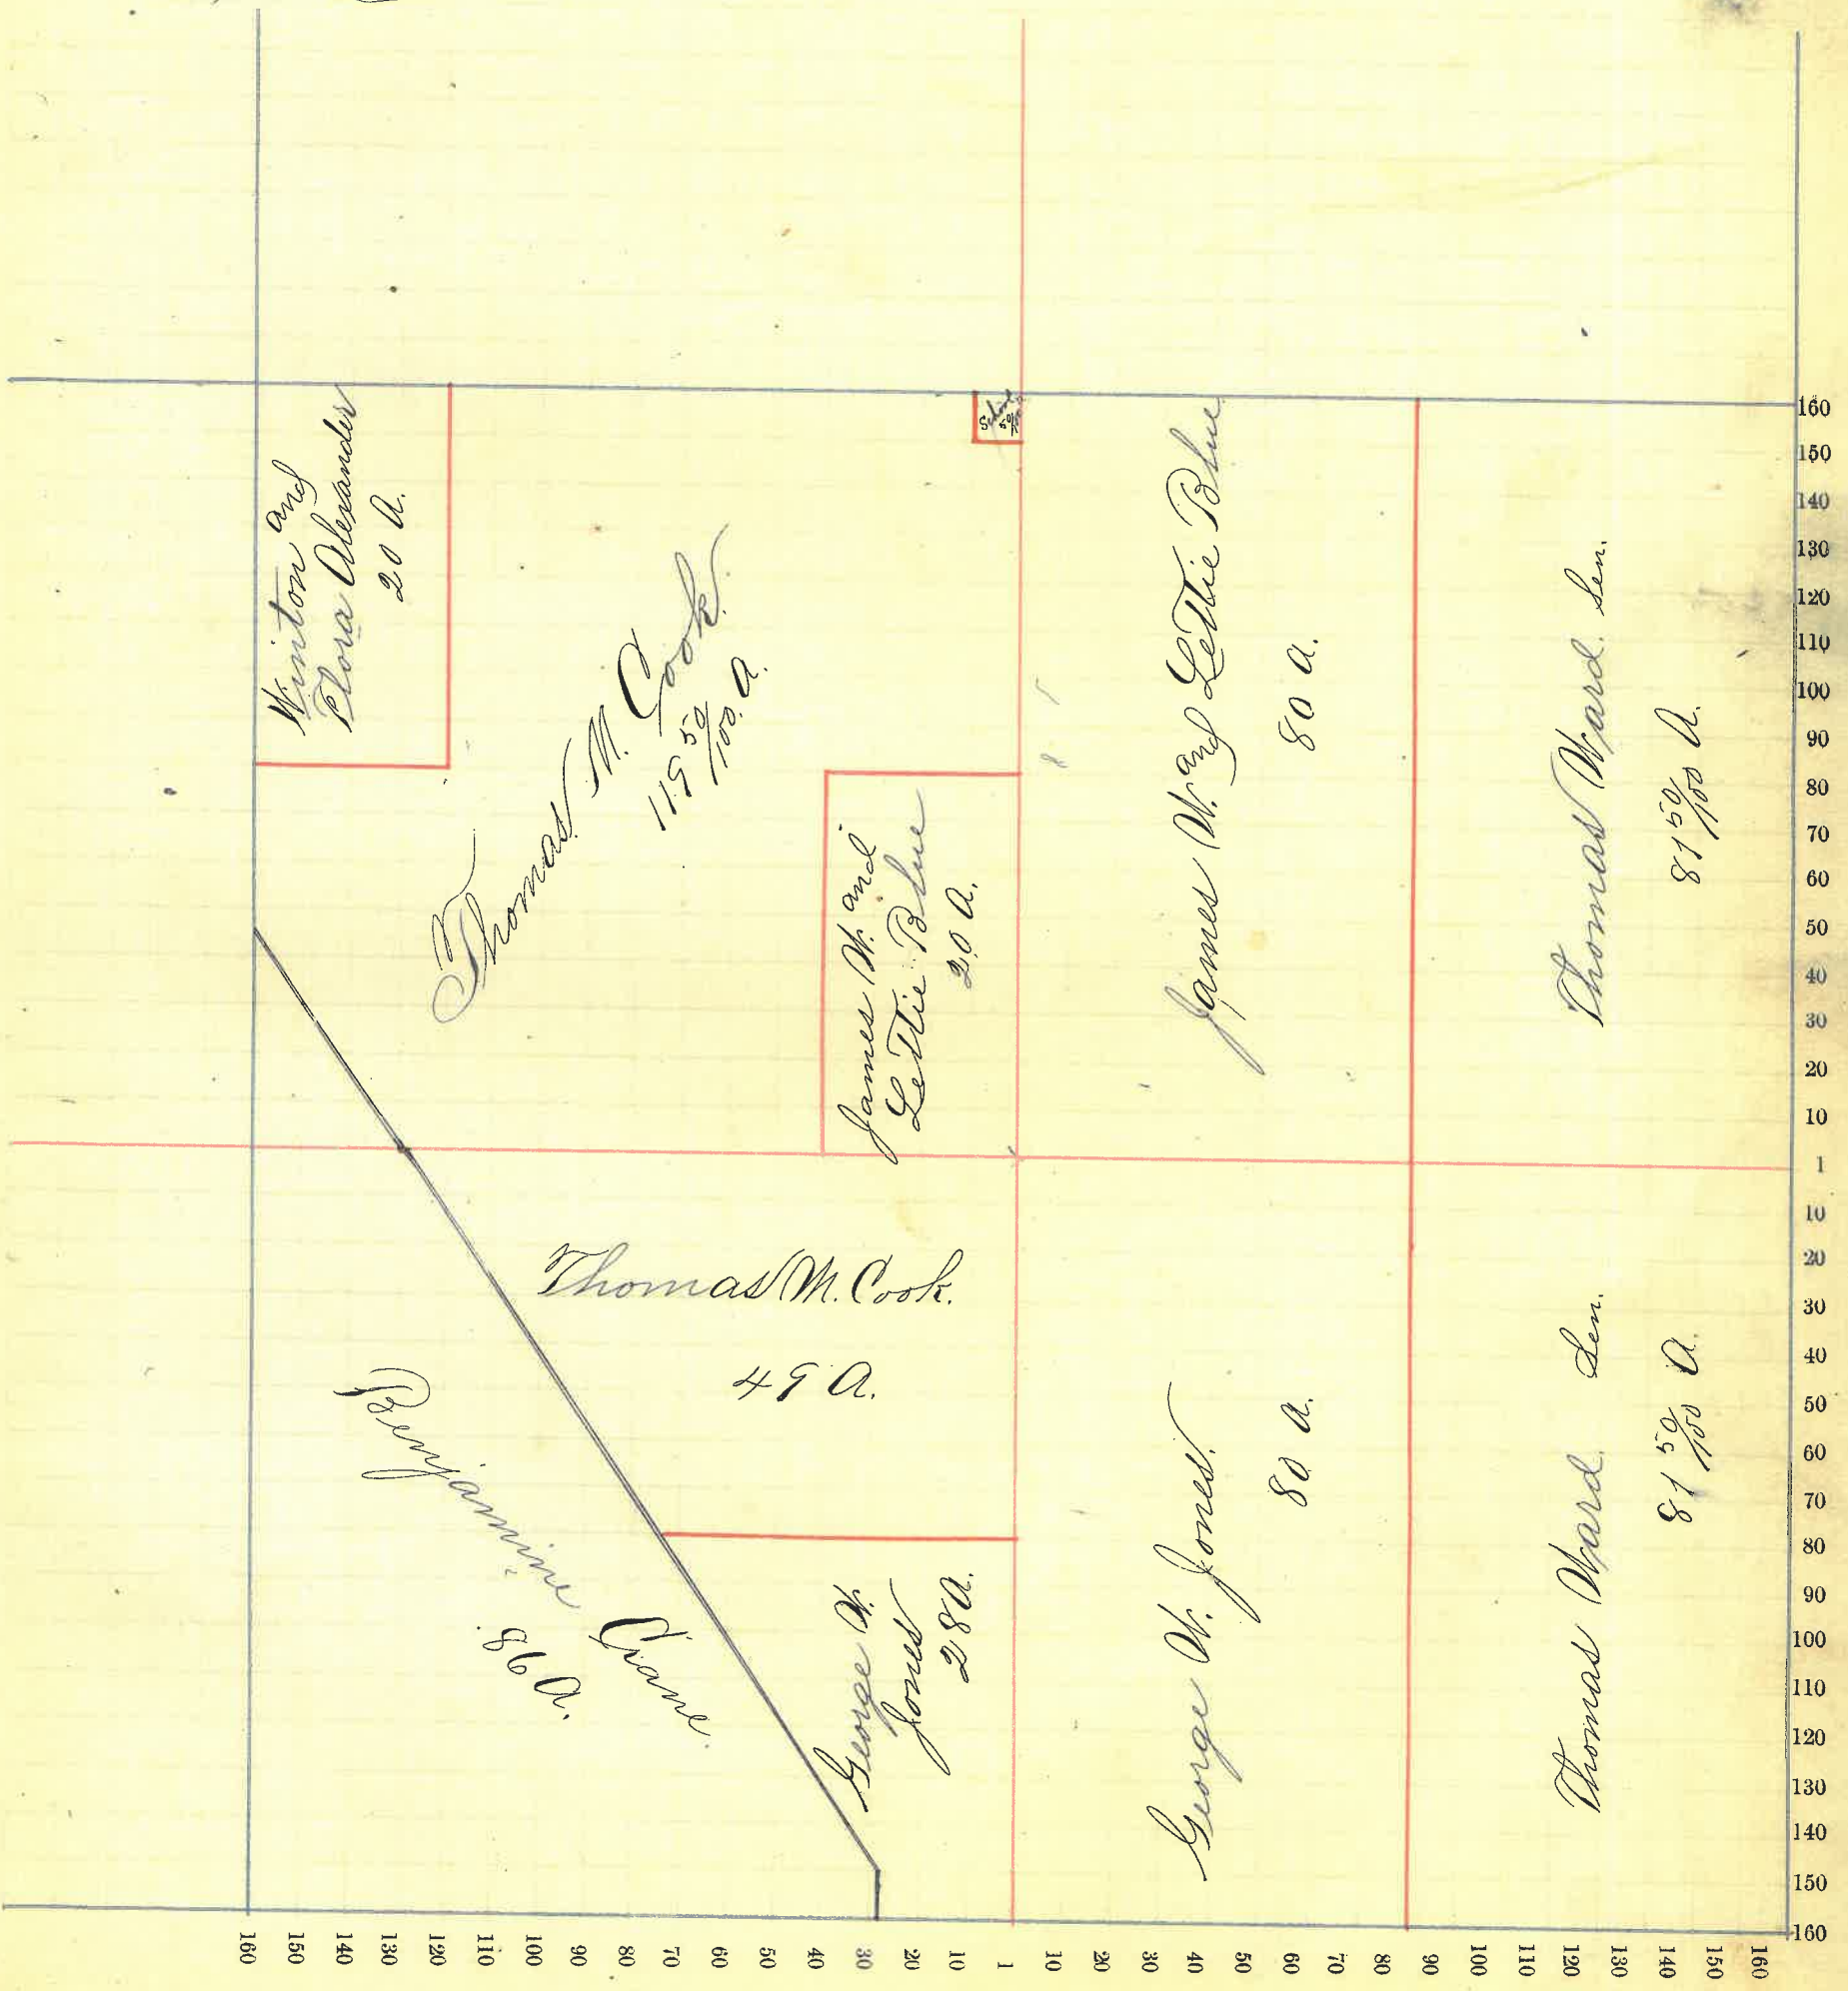 Winton and
Flora Alexander
20 A.
Thomas M. Cook.
119 50/100 A.
James W. and
Lettie Blue
20 A.
James W. and Lettie Blue
80 A.
Thomas Ward Sen.
81 50/100 A.
Thomas M. Cook.
49 A.
Benjamine
Crane.
98 A.
George W.
Jones
28 A.
George W. Jones.
80 A.
Thomas Ward Sen.
81 50/100 A.
160
150
140
130
120
110
100
90
80
70
60
50
40
30
20
10
1
10
20
30
40
50
60
70
80
90
100
110
120
130
140
150
160
160 150 140 130 120 110 100 90 80 70 60 50 40 30 20 10 1 10 20 30 40 50 60 70 80 90 100 110 120 130 140 150 160